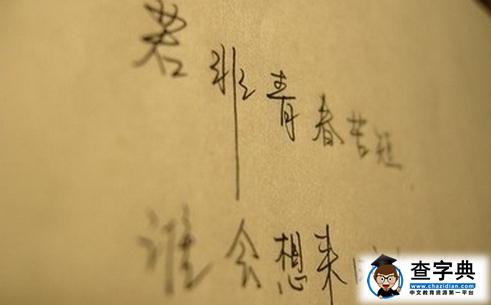 若非青春苦短
谁会想来
查字典
www.chazidian.com
中文教育资源第一平台